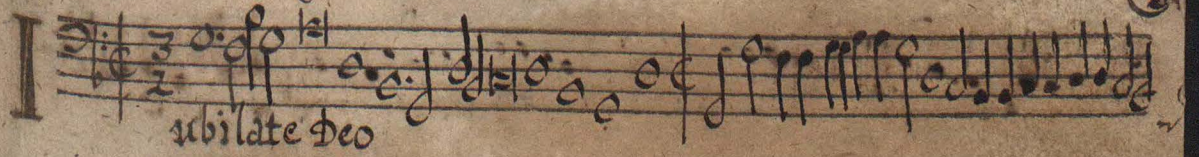 Iubilate Deo